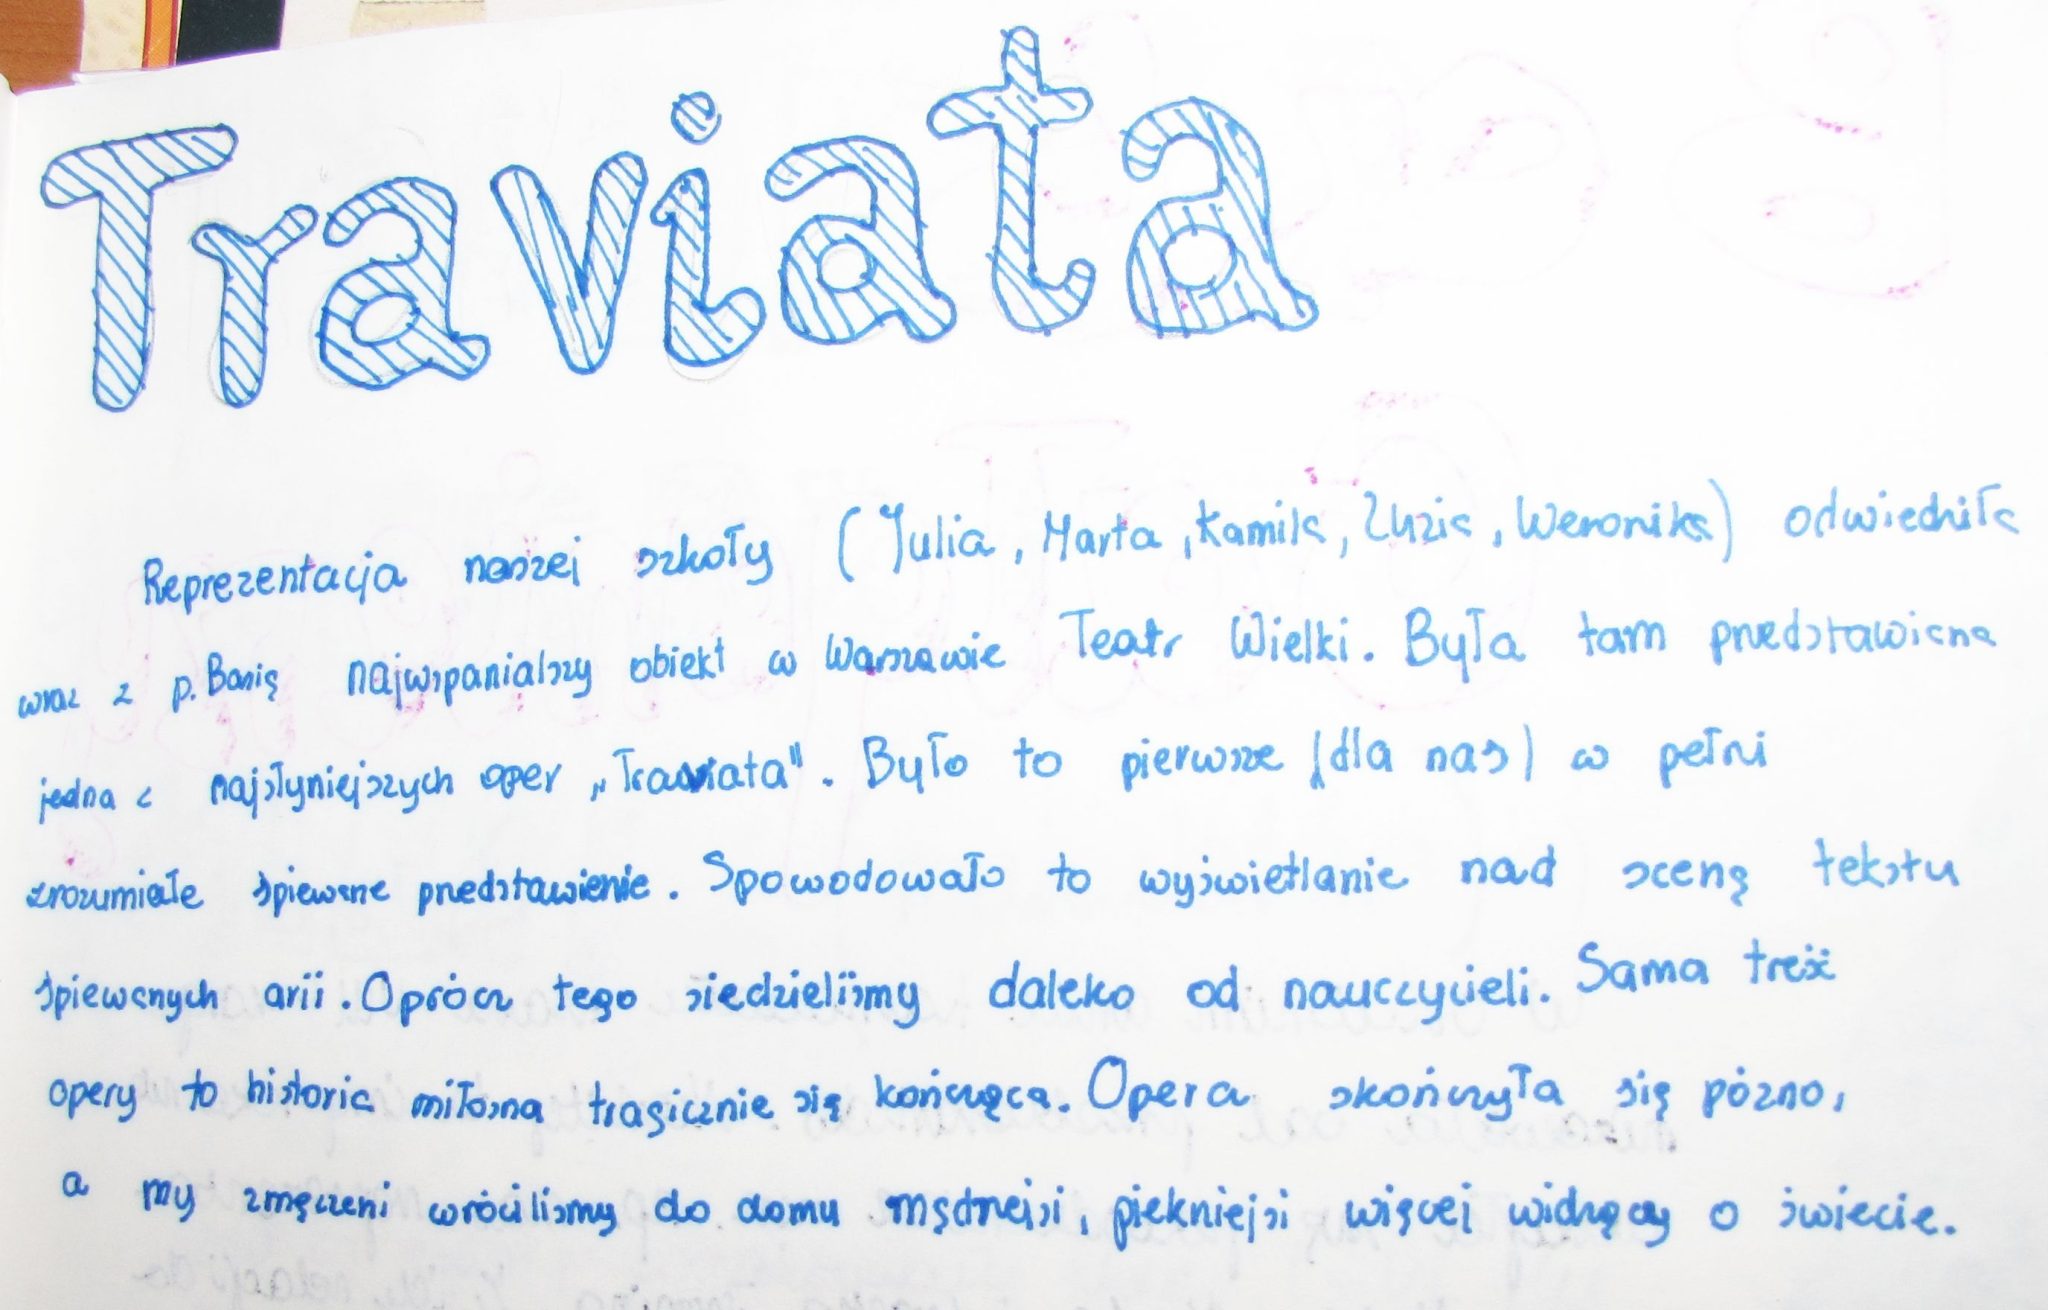 Traviata
Reprezentacja naszej szkoły (Julia, Marta, Kamila, Zuzia, Weronika) odwiedziła
wraz z p. Basią najwspanialszy obiekt w Warszawie Teatr Wielki. Była tam przedstawiana
jedna z najsłyniejszych oper „Traviata". Było to pierwsze (dla nas) w pełni
zrozumiałe śpiewane przedstawienie. Spowodowało to wyświetlanie nad sceną tekstu
śpiewanych arii. Oprócz tego siedzieliśmy daleko od nauczycieli. Sama treść
opery to historia miłosna tragicznie się kończąca. Opera skończyła się późno,
a my zmęczeni wróciliśmy do domu mądrzejsi, piękniejsi więcej widzący o świecie.